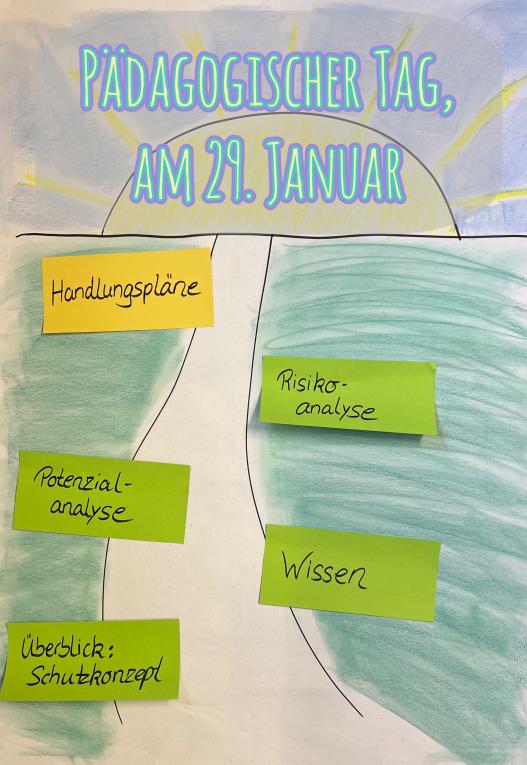 Pädagogischer Tag,
am 29. Januar
Handlungspläne
Risiko-
analyse
Potenzial-
analyse
Wissen
Überblick:
Schutzkonzept